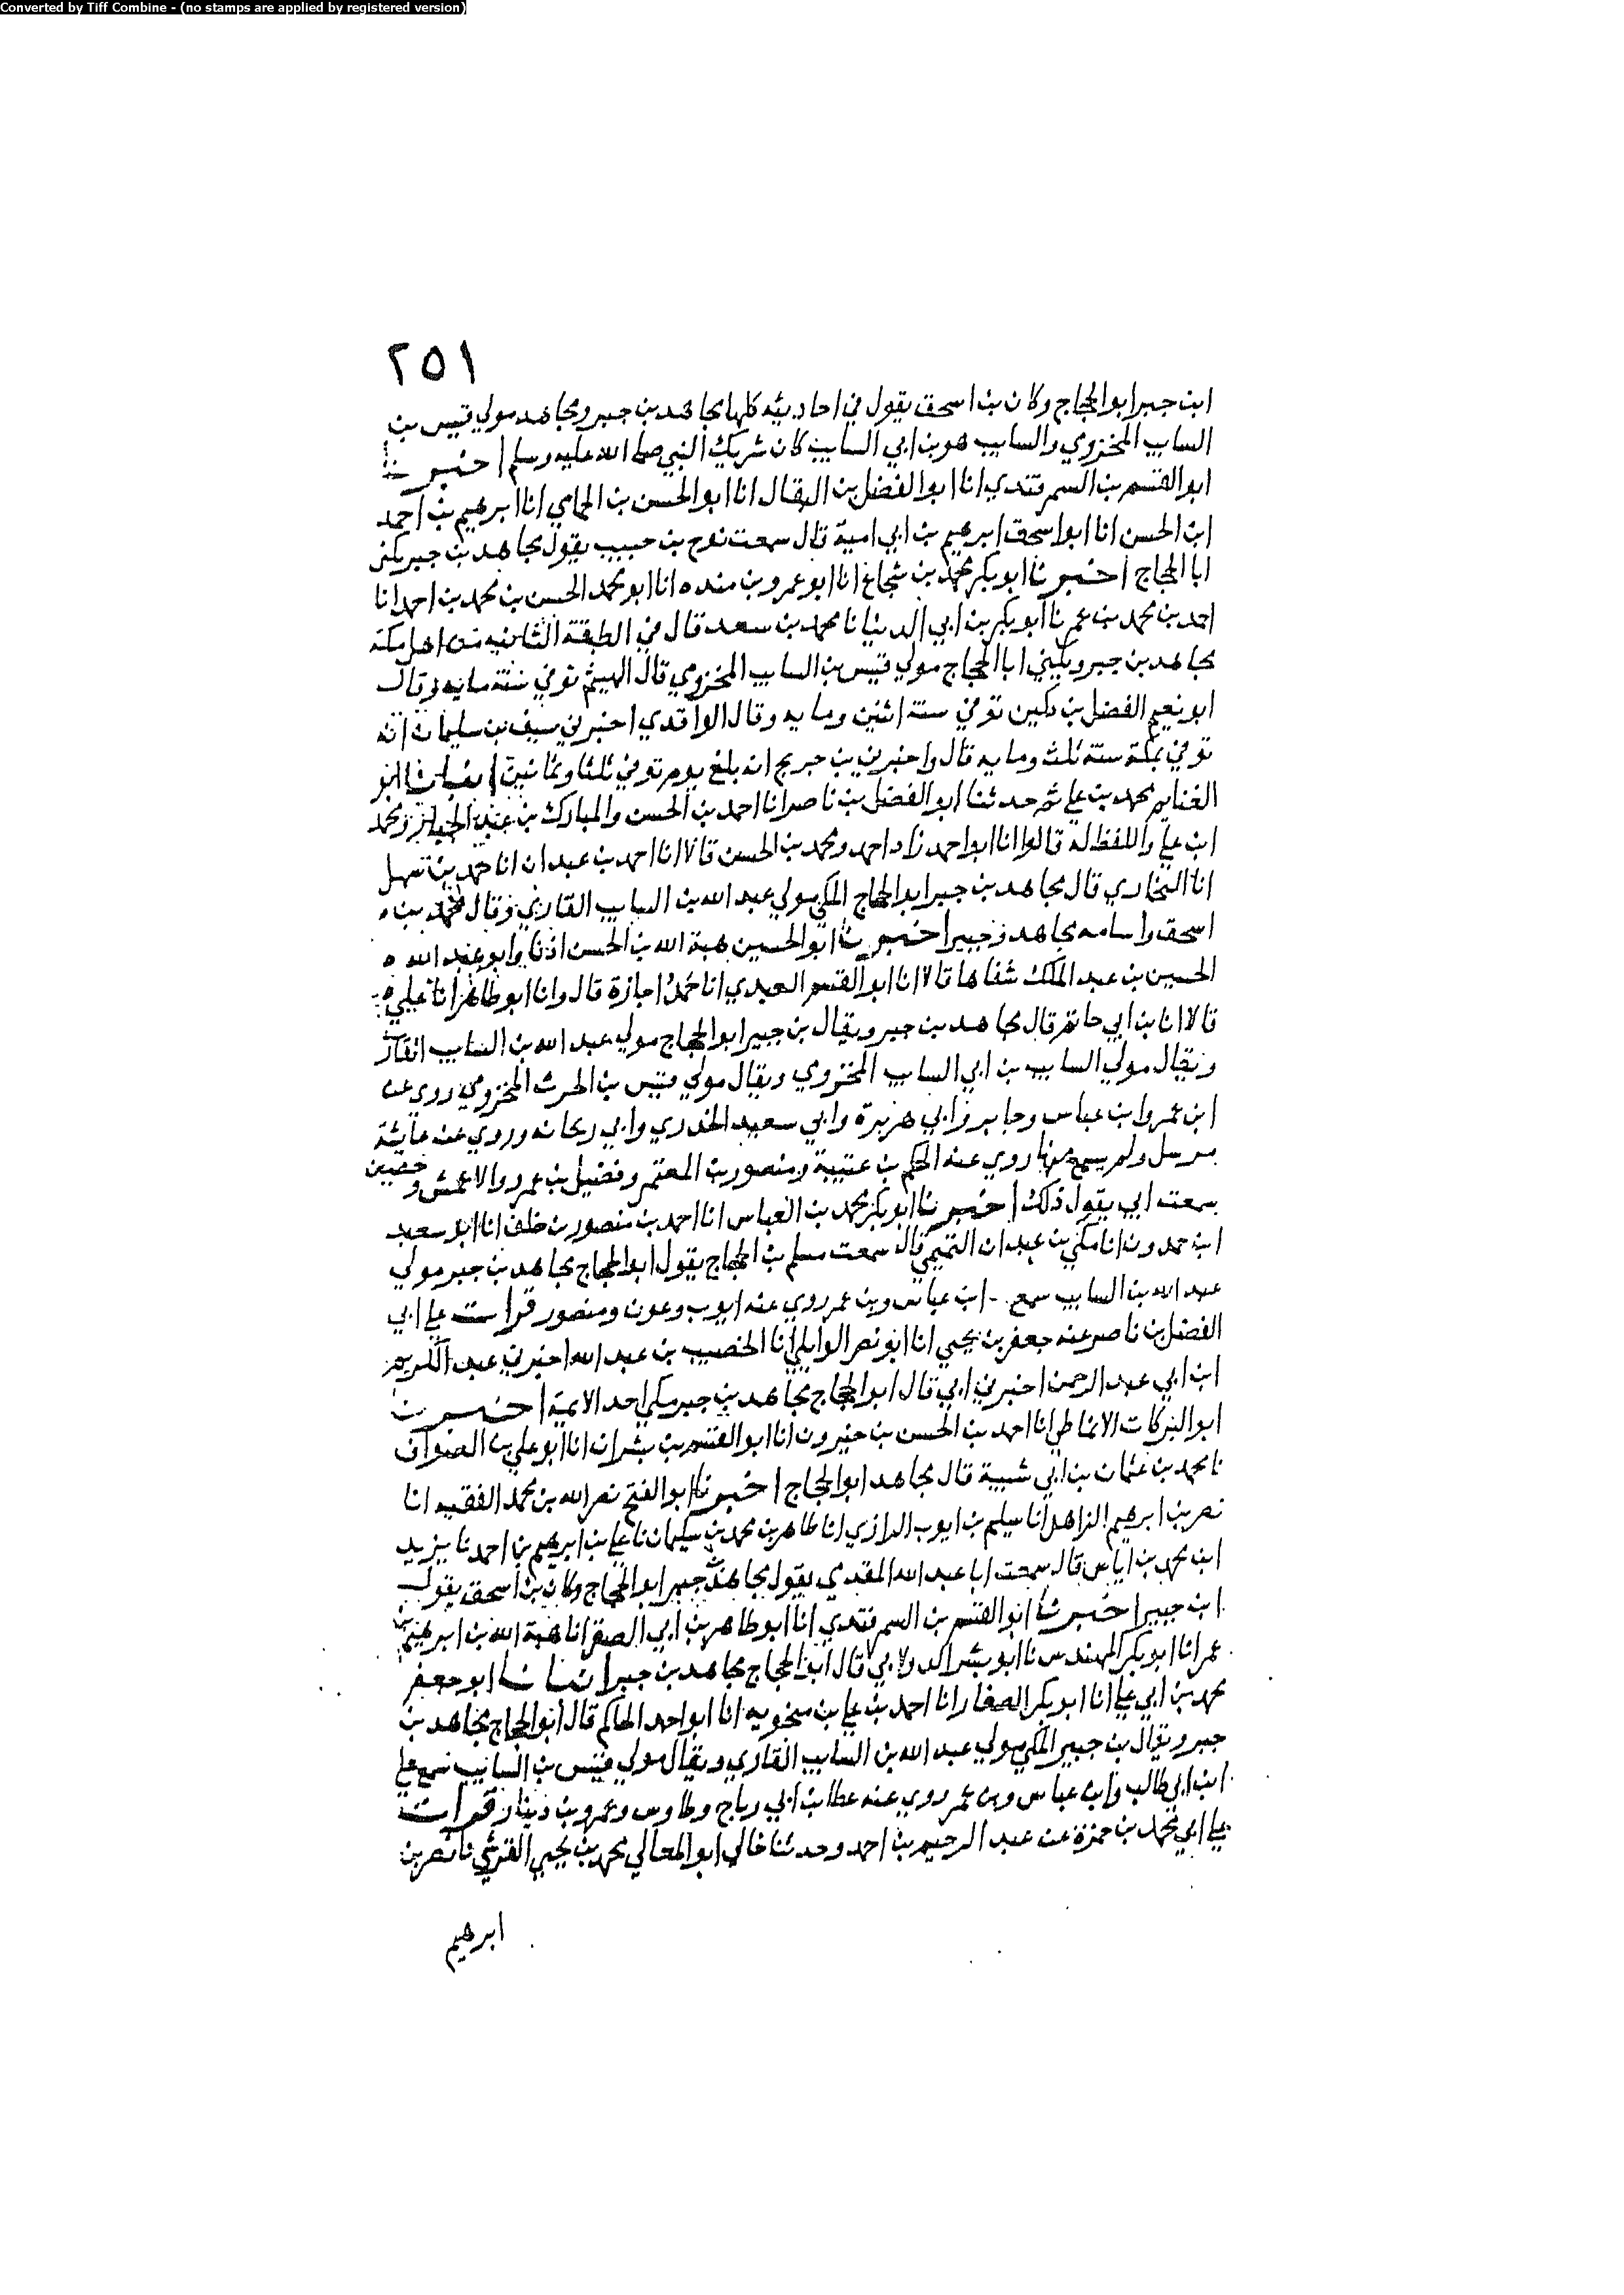 Converted by Tiff Combine - (no stamps are applied by registered version)
٢٥١
ابن جبر ابو الحجاج وكان بن اسحق يقول في احاديثه كلها مجاهد بن جبر ومجاهد مولي قيس بن
السايب المخزومي والسايب هو بن ابي السايب كان شريك النبي صلى الله عليه وسلم اخبرنا
ابو القسم بن السمرقندي انا ابو الفضل بن البقال انا ابو الحسن بن الحمامي انا ابرهيم بن احمد
ابن الحسن انا ابو اسحق ابرهيم بن ابي امية قال سمعت نوح بن حبيب يقول مجاهد بن جبر يكنى
ابا الحجاج اخبرنا ابو بكر محمد بن شجاع انا ابو عمرو بن منده انا ابو محمد الحسن بن محمد بن احمد انا
احمد بن محمد بن عمر نا ابو بكر بن ابي الدنيا نا محمد بن سعد قال في الطبقة الثانيه من اهل مكة
مجاهد بن جبر ويكني ابا الحجاج مولي قيس بن السايب المخزومي قال الهيثم توفي سنة مايه وقال
ابو نعيم الفضل بن دكين توفي سنة اثنين ومايه وقال الواقدي اخبرني سيف بن سليمان انه
توفي بمكة سنة ثلث ومايه قال واخبرني بن جريج انه بلغ يوم توفي ثلثا وثمانين انبانا ابو
الغنايم محمد بن علي ثم حدثنا ابو الفضل بن ناصر انا احمد بن الحسن والمبارك بن عبد الجبار ومحمد
ابن علي واللفظ له قالوا انا ابو احمد زاد احمد ومحمد بن الحسن قالا انا احمد بن عبدان انا محمد بن سهل
انا البخاري قال مجاهد بن جبر ابو الحجاج المكي مولي عبد الله بن السايب القاري وقال محمد بن
اسحق واسامه مجاهد بن جبير اخبرنا ابو الحسين هبة الله بن الحسن اذنا وابو عبد الله
الحسين بن عبد الملك شفاها قالا انا ابو القسم العبدي انا حمد اجازة قال وانا ابو طاهر انا علي
قالا انا بن ابي حاتم قال مجاهد بن جبر ويقال بن جبير ابو الحجاج مولي عبد الله بن السايب القاري
ويقال مولي السايب بن ابي السايب المخزومي ويقال مولي قيس بن الحرث المخزومي روي عن
ابن عمر وابن عباس وجابر وابي هريرة وابي سعيد الخدري وابي ريحانه وروي عن عايشة
مرسل ولم يسمع منها روي عنه الحكم بن عتيبة ومنصور بن المعتمر وفضيل بن عمرو والاعمش وحصين
سمعت ابي يقول ذلك اخبرنا ابو بكر محمد بن العباس انا احمد بن منصور بن خلف انا ابو سعيد
ابن حمدون انا مكي بن عبدان التميمي قال سمعت مسلم بن الحجاج يقول ابو الحجاج مجاهد بن جبر مولي
عبد الله بن السايب سمع ابن عباس وبن عمر روي عنه ايوب وعون ومنصور قرات علي ابي
الفضل بن ناصر عن جعفر بن يحيي انا ابو نصر الوايلي انا الخصيب بن عبد الله اخبرني عبد الكريم
ابن ابي عبد الرحمن اخبرني ابي قال ابو الحجاج مجاهد بن جبر مكي احد الايمة اخبرنا
ابو البركات الانماطي انا احمد بن الحسن بن خيرون انا ابو القسم بن بشران انا ابو علي بن الصواف
نا محمد بن عثمان بن ابي شيبة قال مجاهد ابو الحجاج اخبرنا ابو الفتح نصر الله بن محمد الفقيه انا
نصر بن ابرهيم الزاهد انا سليم بن ايوب الرازي انا طاهر بن محمد بن سليمان نا علي بن ابرهيم بن احمد نا يزيد
ابن محمد بن اياس قال سمعت ابا عبد الله المقدمي يقول مجاهد بن جبر ابو الحجاج وكان بن اسحق يقول
ابن جبير اخبرنا ابو القسم بن السمرقندي انا ابو طاهر بن ابي الصقر انا هبة الله بن ابرهيم بن
عمر انا ابو بكر المهندس نا ابو بشر الدولابي قال ابو الحجاج مجاهد بن جبر انبانا ابو جعفر
محمد بن ابي علي انا ابو بكر الصفار انا احمد بن علي بن منجويه انا ابو احمد الحاكم قال ابو الحجاج مجاهد بن
جبر ويقال بن جبير المكي مولي عبد الله بن السايب القاري ويقال مولي قيس بن السايب سمع علي
ابن ابي طالب وابن عباس وبن عمر روي عنه عطا بن ابي رباح وطاوس وعمرو بن دينار قرات
علي ابي محمد بن حمزة عن عبد الرحيم بن احمد وحدثنا خالي ابو المعالي محمد بن يحيي القرشي نا نصر بن
ابرهيم